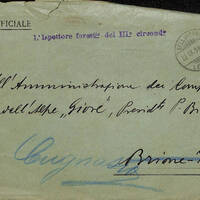 FICIALE
L'Ispettore forestle del IIIo circondo
ll'Amministrazione dei Comp
dell'Alpe „Giove", Presidte P. B
Cugnasco
Brione-